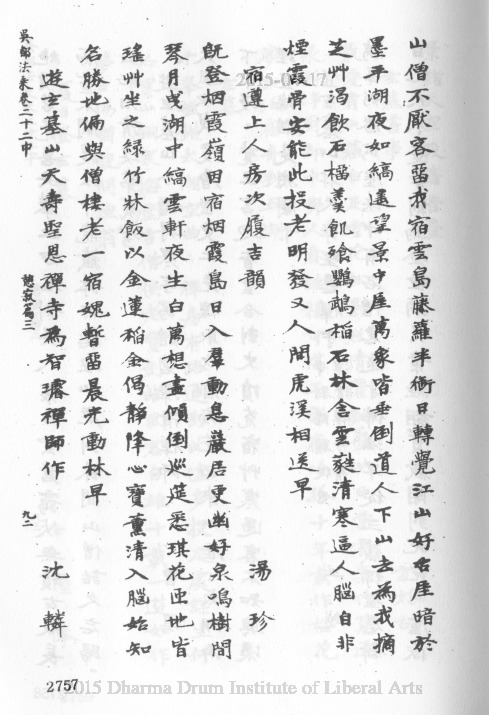 山僧不厭客畱我宿雲島藤蘿半銜日轉覺江山好石厓暗於
墨平湖夜如縞遙望景中厓萬象皆垂倒道人下山去為我摘
芝艸渴飲石橊羹飢飡鸚鵡稻石林含雲瀣清寒逼人腦自非
煙霞骨安能此投老明發又人間虎溪相送早
宿遵上人房次履吉韻
湯珍
旣登烟霞嶺田宿烟霞島日入羣動息巖居更幽好泉鳴樹間
琴月戋湖中縞雲軒夜生白萬想盡傾倒巡莚悉琪花匝地皆
瑤艸坐之綠竹牀飯以金蓮稻金偈靜降心寶薰清入腦始知
名勝地偏與僧棲老一宿媿暫畱晨光動林早
遊玄墓山天壽聖恩禪寺爲智璿禪師作
沈轔
吳都法乘卷二十二中
憩寂篇三
九二
2757
2015-04-17
2015 Dharma Drum Institute of Liberal Arts